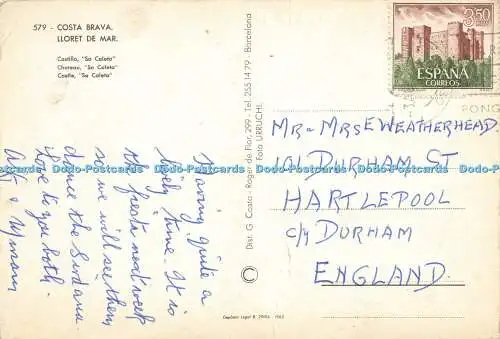 579 - COSTA BRAVA.
LLORET DE MAR.
Castillo, "Sa Caleta"
Chateau, "Sa Caleta"
Castle, "Sa Caleta"
Having quite a
lively time. It is
the fiesta next week
so we will see them
dance the Sardana
Love to you both.
Dist. G. Costa - Roger de Flor, 299 - Tel. 255 14 79 - Barcelona
Foto URRUCHI.
3,50
PTAS
ESPAÑA
CORREOS
PONG
MR - MRS E WEATHERHEAD
101 DURHAM ST
HARTLEPOOL
C/y DURHAM
ENGLAND.
Dodo-Postcards Dodo-Postcards Dodo-Postcards Dodo-Postcards Dodo-Postcards